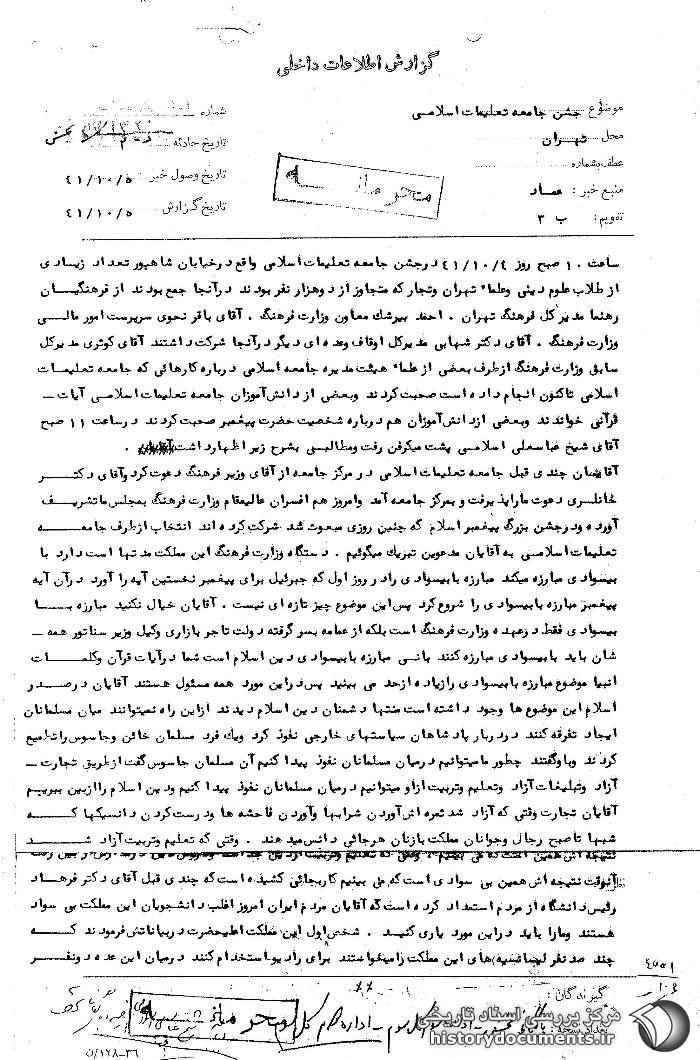 گزارش اطلاعات داخلی
موضوع جشن جامعه تعلیمات اسلامی
محل تهران
عطف بشماره
منبع خبر : عماد
تقویم : ب ۳
شماره
تاریخ حادثه
تاریخ وصول خبر ۴۱/۱۰/۵
تاریخ گزارش ۴۱/۱۰/۵
محرمانه
ساعت ۱۰ صبح روز ۴۱/۱۰/۴ درجشن جامعه تعلیمات اسلامی واقع درخیابان شاهپور تعداد زیادی
از طلاب علوم دینی وعلماء تهران وتجار که متجاوز از دوهزار نفر بودند درآنجا جمع بودند از فرهنگیان
رهنما مدیرکل فرهنگ تهران . احمد بیرشک معاون وزارت فرهنگ . آقای باقر نحوی سرپرست امور مالی
وزارت فرهنگ . آقای دکتر شهابی مدیرکل اوقاف وعده ای دیگر درآنجا شرکت داشتند آقای کوثری مدیرکل
سابق وزارت فرهنگ ازطرف بعضی از علماء هیئت مدیره جامعه اسلامی درباره کارهائی که جامعه تعلیمات
اسلامی تاکنون انجام داده است صحبت کردند وبعضی از دانش آموزان جامعه تعلیمات اسلامی آیات ـ
قرآنی خواندند وبعضی ازدانش آموزان هم درباره شخصیت حضرت پیغمبر صحبت کردند درساعت ۱۱ صبح
آقای شیخ عباسعلی اسلامی پشت میکرفن رفت ومطالبی بشرح زیر اظهارداشت .
آقایان چندی قبل جامعه تعلیمات اسلامی در مرکز جامعه از آقای وزیر فرهنگ دعوت کرد وآقای دکتر
خانلری دعوت مارا پذیرفت و بمرکز جامعه آمد وامروز هم افسران عالیمقام وزارت فرهنگ بمجلس ماتشریف
آورده ودرجشن بزرگ پیغمبر اسلام که چنین روزی مبعوث شد شرکت کرده اند انتخاب ازطرف جامعه
تعلیمات اسلامی به آقایان مدعوین تبریک میگوئیم . دستگاه وزارت فرهنگ این مملکت مدتها است دارد با
بیسوادی مبارزه میکند مبارزه بابیسوادی رادر روز اول که جبرئیل برای پیغمبر نخستین آیه را آورد درآن آیه
پیغمبر مبارزه بابیسوادی را شروع کرد پس این موضوع چیز تازه ای نیست . آقایان خیال نکنید مبارزه با
بیسوادی فقط درعهده وزارت فرهنگ است بلکه از عمامه بسر گرفته دولت تاجر بازاری وکیل وزیر سناتور همه ـ
شان باید بابیسوادی مبارزه کنند بانی مبارزه بابیسوادی دین اسلام است شما درآیات قرآن وکلمات
انبیا موضوع مبارزه بابیسوادی رازیاده ازحد می بینید پس دراین مورد همه مسئول هستند آقایان درصدر
اسلام این موضوع ها وجود داشته است منتها دشمنان دین اسلام دیدند ازاین راه نمیتوانند میان مسلمانان
ایجاد تفرقه کنند دردربار پادشاهان سیاستهای خارجی نفوذ کرد ویک فرد مسلمان خائن وجاسوس راتطمیع
کردند وباوگفتند چطور مامیتوانیم درمیان مسلمانان نفوذ پیدا کنیم آن مسلمان جاسوس گفت ازطریق تجارت ـ
آزاد وتبلیغات آزاد وتعلیم وتربیت آزاد میتوانیم درمیان مسلمانان نفوذ پیدا کنیم ودین اسلام راازبین ببریم
آقایان تجارت وقتی که آزاد شد ثمره اش آوردن شرابها وآوردن فاحشه ها ودرست کردن دانسینگها که
شبها تاصبح رجال وجوانان مملکت بازنان هرجائی دانس میدهند . وقتی که تعلیم وتربیت آزاد شد
نتیجه اش همین است که می بینیم
آنوقت نتیجه اش همین بی سوادی است که می بینیم کاربجائی کشیده است که چندی قبل آقای دکتر فرهاد
رئیس دانشگاه از مردم استمداد کرده است که آقایان مردم ایران امروز اغلب دانشجویان این مملکت بی سواد
هستند ومارا باید دراین مورد یاری کنید . شخص اول این مملکت اعلیحضرت دربیاناتش فرمودند که
چند صد نفر لیسانسیه های این مملکت رامیخواستند برای رادیو استخدام کنند درمیان این عده دونفر
گیرندگان :
تعداد نسخه
محرمانه
۳۶-۱۲۸/ن
مرکز بررسی اسناد تاریخی
historydocuments.ir